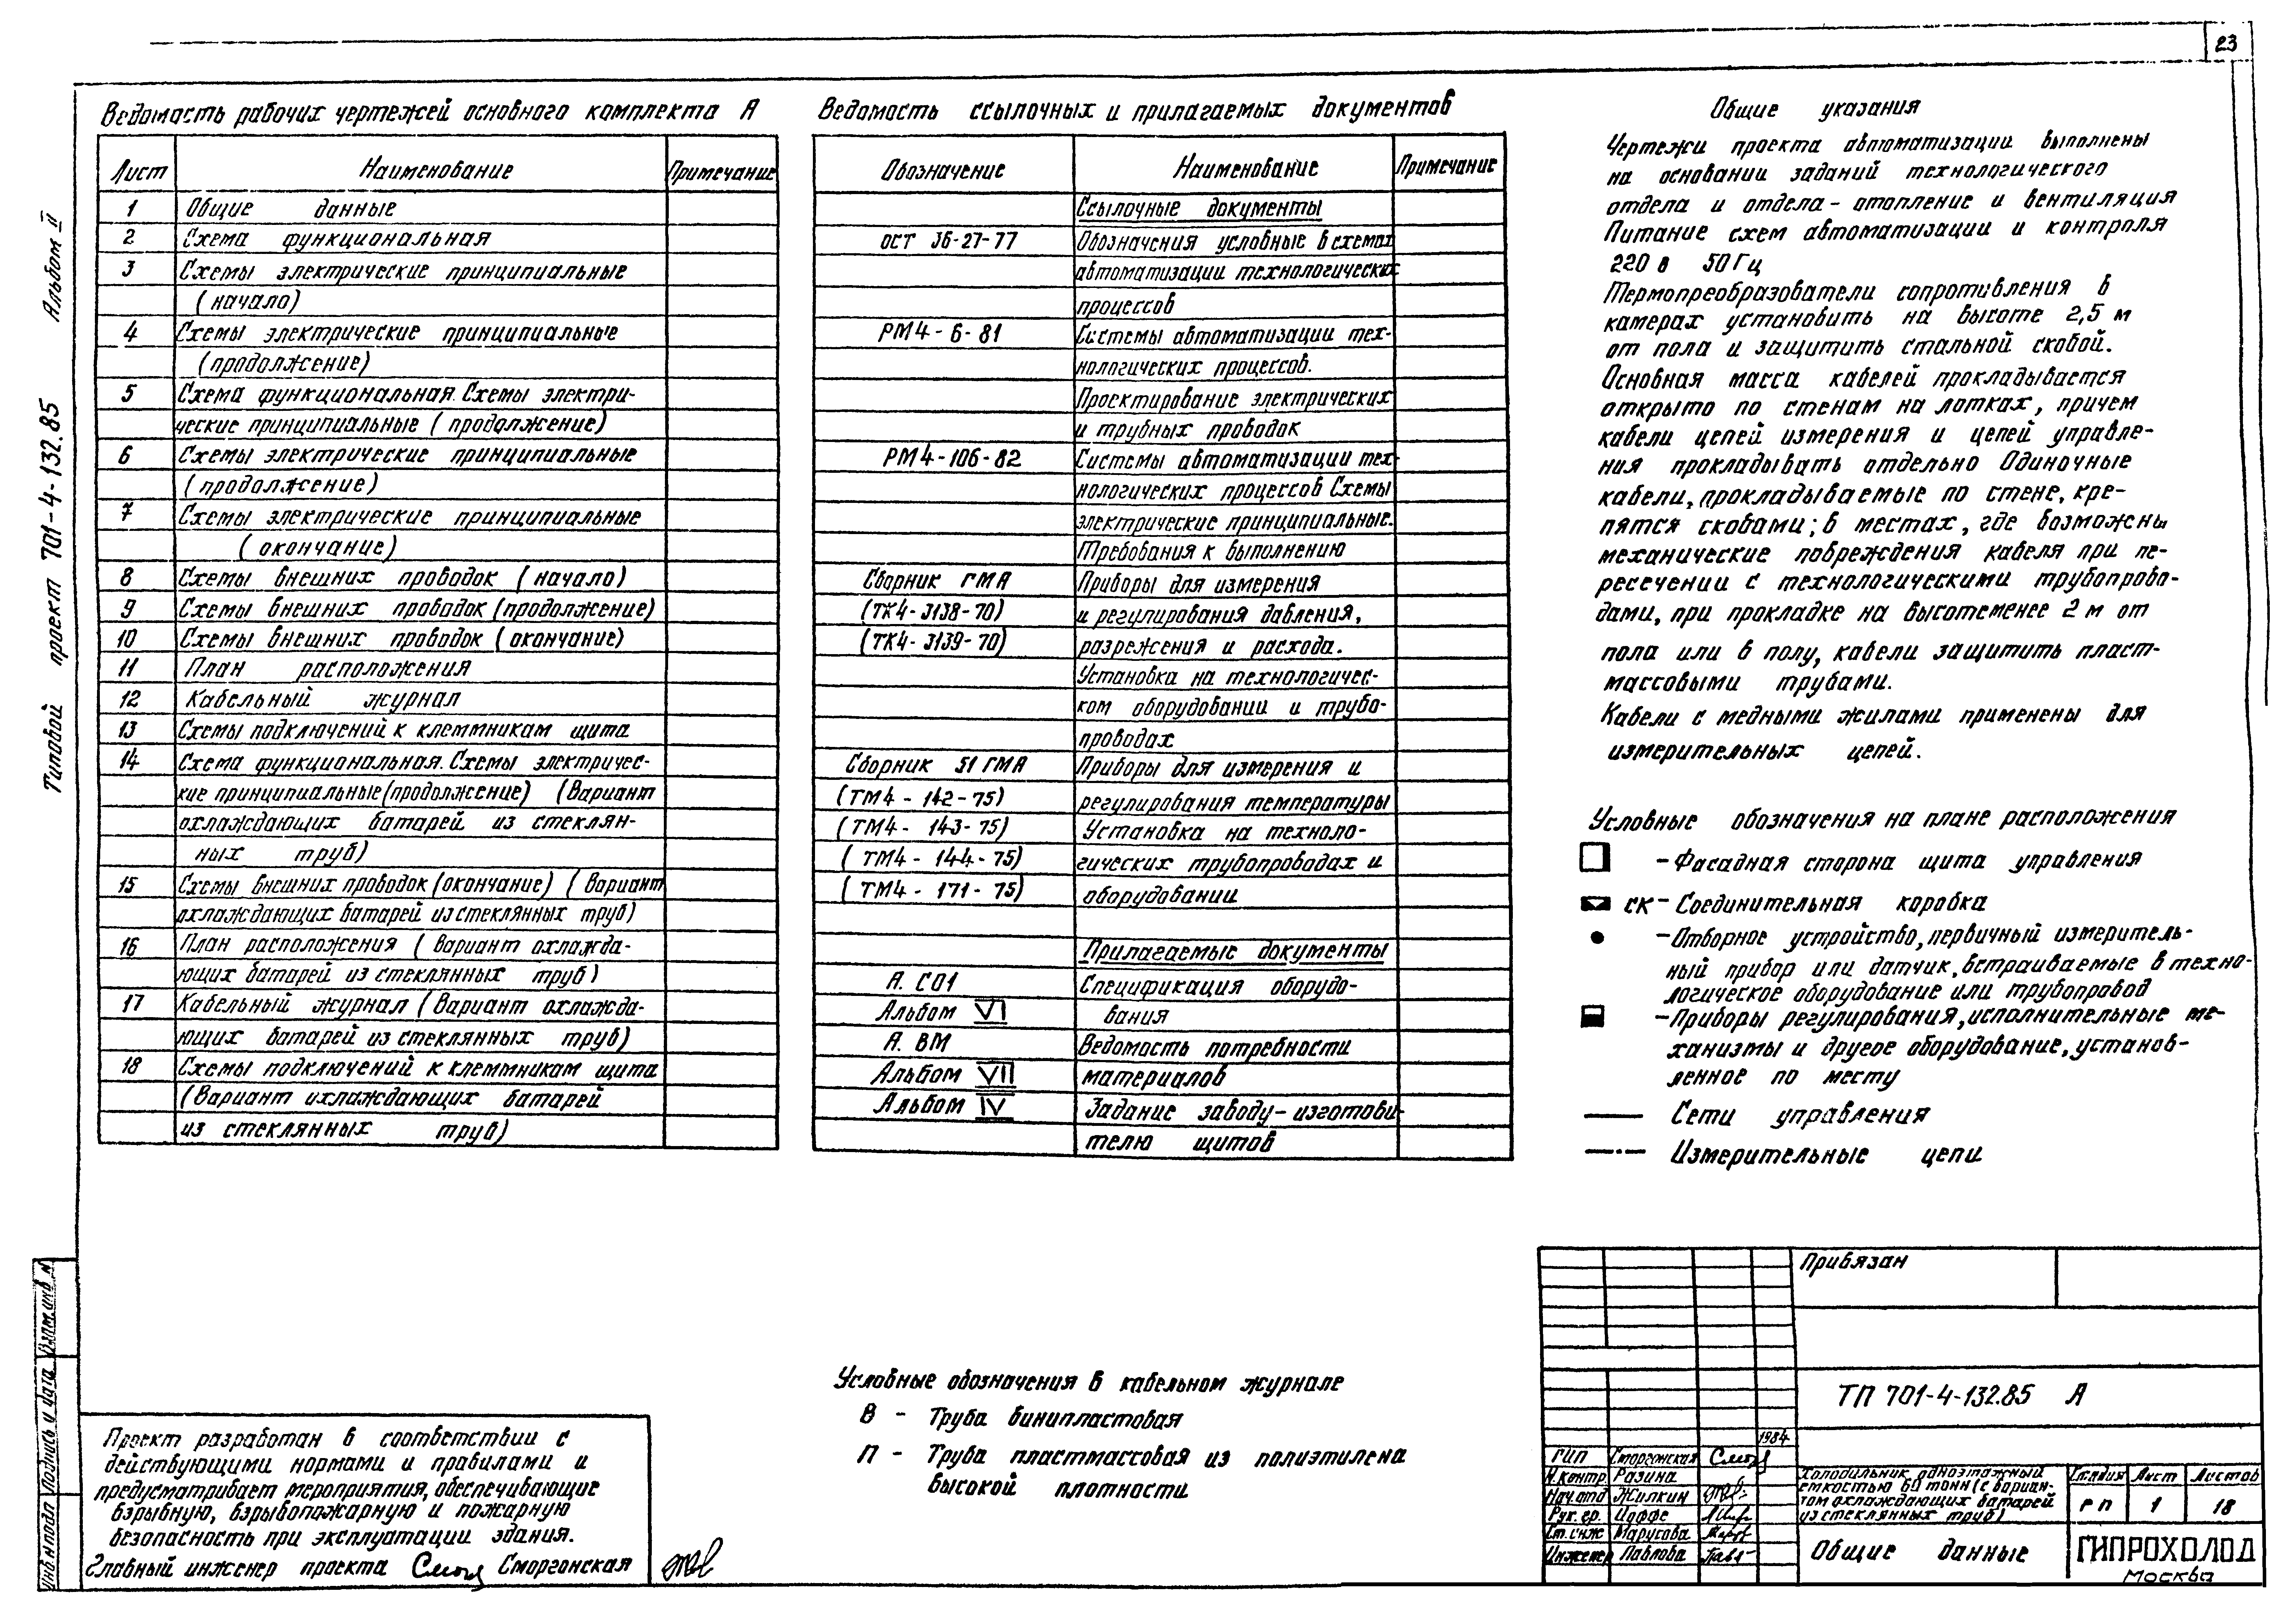 23
Типовой проект 701-4-132.85 Альбом II
Ведомость рабочих чертежей основного комплекта А
Лист Наименование Примечание
1 Общие данные
2 Схема функциональная
3 Схемы электрические принципиальные
(начало)
4 Схемы электрические принципиальные
(продолжение)
5 Схема функциональная. Схемы электри-
ческие принципиальные (продолжение)
6 Схемы электрические принципиальные
(продолжение)
7 Схемы электрические принципиальные
(окончание)
8 Схемы внешних проводок (начало)
9 Схемы внешних проводок (продолжение)
10 Схемы внешних проводок (окончание)
11 План расположения
12 Кабельный журнал
13 Схемы подключений к клеммникам щита
14 Схема функциональная. Схемы электричес-
кие принципиальные (продолжение) (Вариант
охлаждающих батарей из стеклян-
ных труб)
15 Схемы внешних проводок (окончание) (Вариант
охлаждающих батарей из стеклянных труб)
16 План расположения (Вариант охлажда-
ющих батарей из стеклянных труб)
17 Кабельный журнал (Вариант охлажда-
ющих батарей из стеклянных труб)
18 Схемы подключений к клеммникам щита
(Вариант охлаждающих батарей
из стеклянных труб)
Ведомость ссылочных и прилагаемых документов
Обозначение Наименование Примечание
Ссылочные документы
ОСТ 36-27-77 Обозначения условные в схемах
автоматизации технологических
процессов
РМ4-6-81 Системы автоматизации тех-
нологических процессов.
Проектирование электрических
и трубных проводок
РМ4-106-82 Системы автоматизации тех-
нологических процессов Схемы
электрические принципиальные.
Требования к выполнению
Сборник ГМА Приборы для измерения
(ТК4-3138-70) и регулирования давления,
(ТК4-3139-70) разрежения и расхода.
Установка на технологичес-
ком оборудовании и трубо-
проводах
Сборник 51 ГМА Приборы для измерения и
(ТМ4-142-75) регулирования температуры
(ТМ4-143-75) Установка на техноло-
(ТМ4-144-75) гических трубопроводах и
(ТМ4-171-75) оборудовании
Прилагаемые документы
А. СО1 Спецификация оборудо-
Альбом VI вания
А. ВМ Ведомость потребности
Альбом VII материалов
Альбом IV Задание заводу-изготови-
телю щитов
Общие указания
Чертежи проекта автоматизации выполнены
на основании заданий технологического
отдела и отдела - отопление и вентиляция
Питание схем автоматизации и контроля
220 в 50 Гц
Термопреобразователи сопротивления в
камерах установить на высоте 2,5 м
от пола и защитить стальной скобой.
Основная масса кабелей прокладывается
открыто по стенам на лотках, причем
кабели цепей измерения и цепей управле-
ния прокладывать отдельно Одиночные
кабели, прокладываемые по стене, кре-
пятся скобами; в местах, где возможны
механические повреждения кабеля при пе-
ресечении с технологическими трубопрово-
дами, при прокладке на высоте менее 2 м от
пола или в полу, кабели защитить пласт-
массовыми трубами.
Кабели с медными жилами применены для
измерительных цепей.
Условные обозначения на плане расположения
- Фасадная сторона щита управления
СК - Соединительная коробка
- Отборное устройство, первичный измеритель-
ный прибор или датчик, встраиваемые в техно-
логическое оборудование или трубопровод
- Приборы регулирования, исполнительные ме-
ханизмы и другое оборудование, установ-
ленное по месту
Сети управления
Измерительные цепи
Условные обозначения в кабельном журнале
В - Труба винипластовая
П - Труба пластмассовая из полиэтилена
высокой плотности
Проект разработан в соответствии с
действующими нормами и правилами и
предусматривает мероприятия, обеспечивающие
взрывную, взрывопожарную и пожарную
безопасность при эксплуатации здания.
Главный инженер проекта Сморгонская
Инв.N подл Подпись и дата Взам.инв N
Привязан
ТП 701-4-132.85 А
1984
ГИП Сморгонская
Н.контр. Разина
Нач.отд Жилкин
Рук. гр. Иоффе
Ст. инж Марусова
Инженер Павлова
Холодильник одноэтажный
емкостью 60 тонн (с вариан-
том охлаждающих батарей
из стеклянных труб)
Стадия Лист Листов
РП 1 18
Общие данные
ГИПРОХОЛОД
Москва